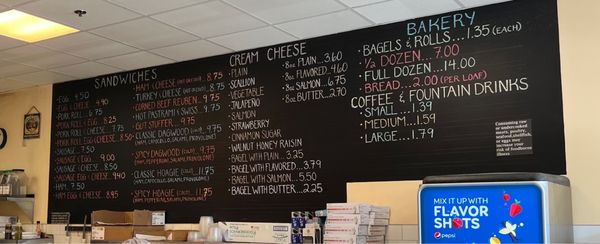 SANDWICHES
EGG 4.50
EGG & CHEESE 4.90
PORK ROLL 6.75
PORK ROLL & EGG 8.25
PORK ROLL & CHEESE 7.75
SAUSAGE 7.50
SAUSAGE & EGG 9.00
SAUSAGE & CHEESE 8.50
HAM 7.50
HAM EGG & CHEESE 8.95
HAM & CHEESE 8.75
TURKEY & CHEESE 8.75
CORNED BEEF REUBEN 9.75
HOT PASTRAMI & SWISS 9.75
GUT STUFFER 9.75
CLASSIC DAGWOOD 9.75
SPICY DAGWOOD 9.75
CLASSIC HOAGIE 11.75
SPICY HOAGIE 11.75
CREAM CHEESE
PLAIN
SCALLION
VEGETABLE
JALAPEÑO
SALMON
STRAWBERRY
CINNAMON SUGAR
WALNUT HONEY RAISIN
BAGEL WITH PLAIN... 3.25
BAGEL WITH FLAVORED... 3.79
BAGEL WITH SALMON... 5.50
BAGEL WITH BUTTER... 2.25
8oz PLAIN 3.60
8oz FLAVORED 4.60
8oz SALMON 6.75
8oz BUTTER... 2.70
BAKERY
BAGELS & ROLLS... 1.35 (EACH)
½ DOZEN... 7.00
FULL DOZEN... 14.00
BREAD... 2.00 (PER LOAF)
COFFEE & FOUNTAIN DRINKS
SMALL... 1.39
MEDIUM... 1.59
LARGE... 1.79
Consuming raw
or undercooked
meats, poultry,
seafood, shellfish,
or eggs may
increase your risk
of foodborne
illness
MIX IT UP WITH
FLAVOR
SHOTS
pepsi